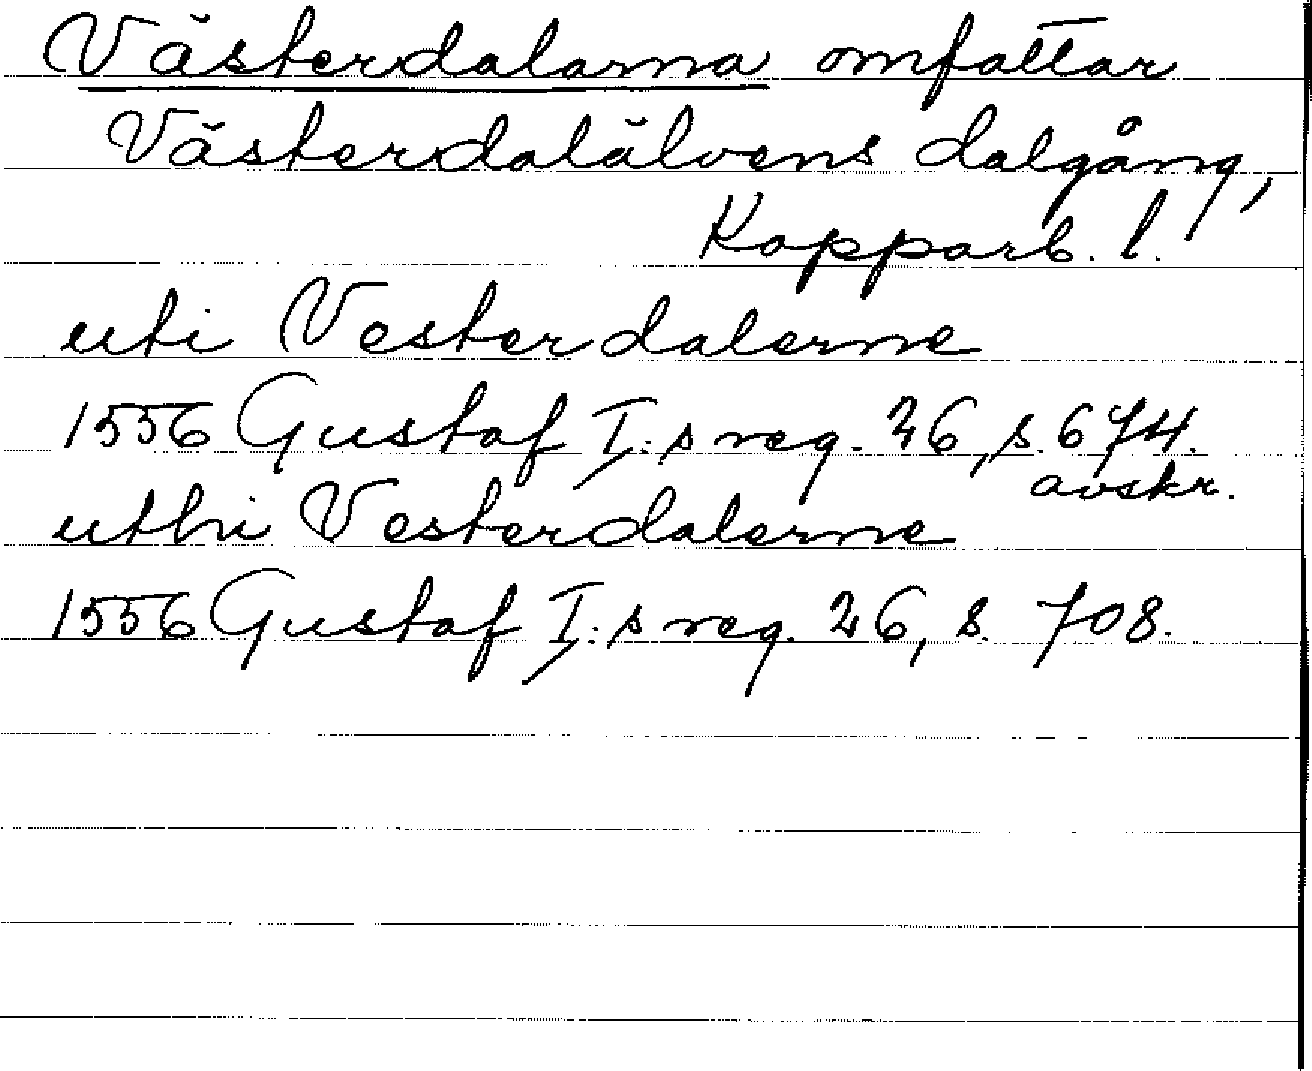 Västerdalarna omfattar
Västerdalälvens dalgång,
Kopparb. l.
uti Vesterdalerne
1556 Gustaf I:s reg. 26, s. 674.
avskr.
uthi Vesterdalerne
1556 Gustaf I:s reg. 26, s. 708.